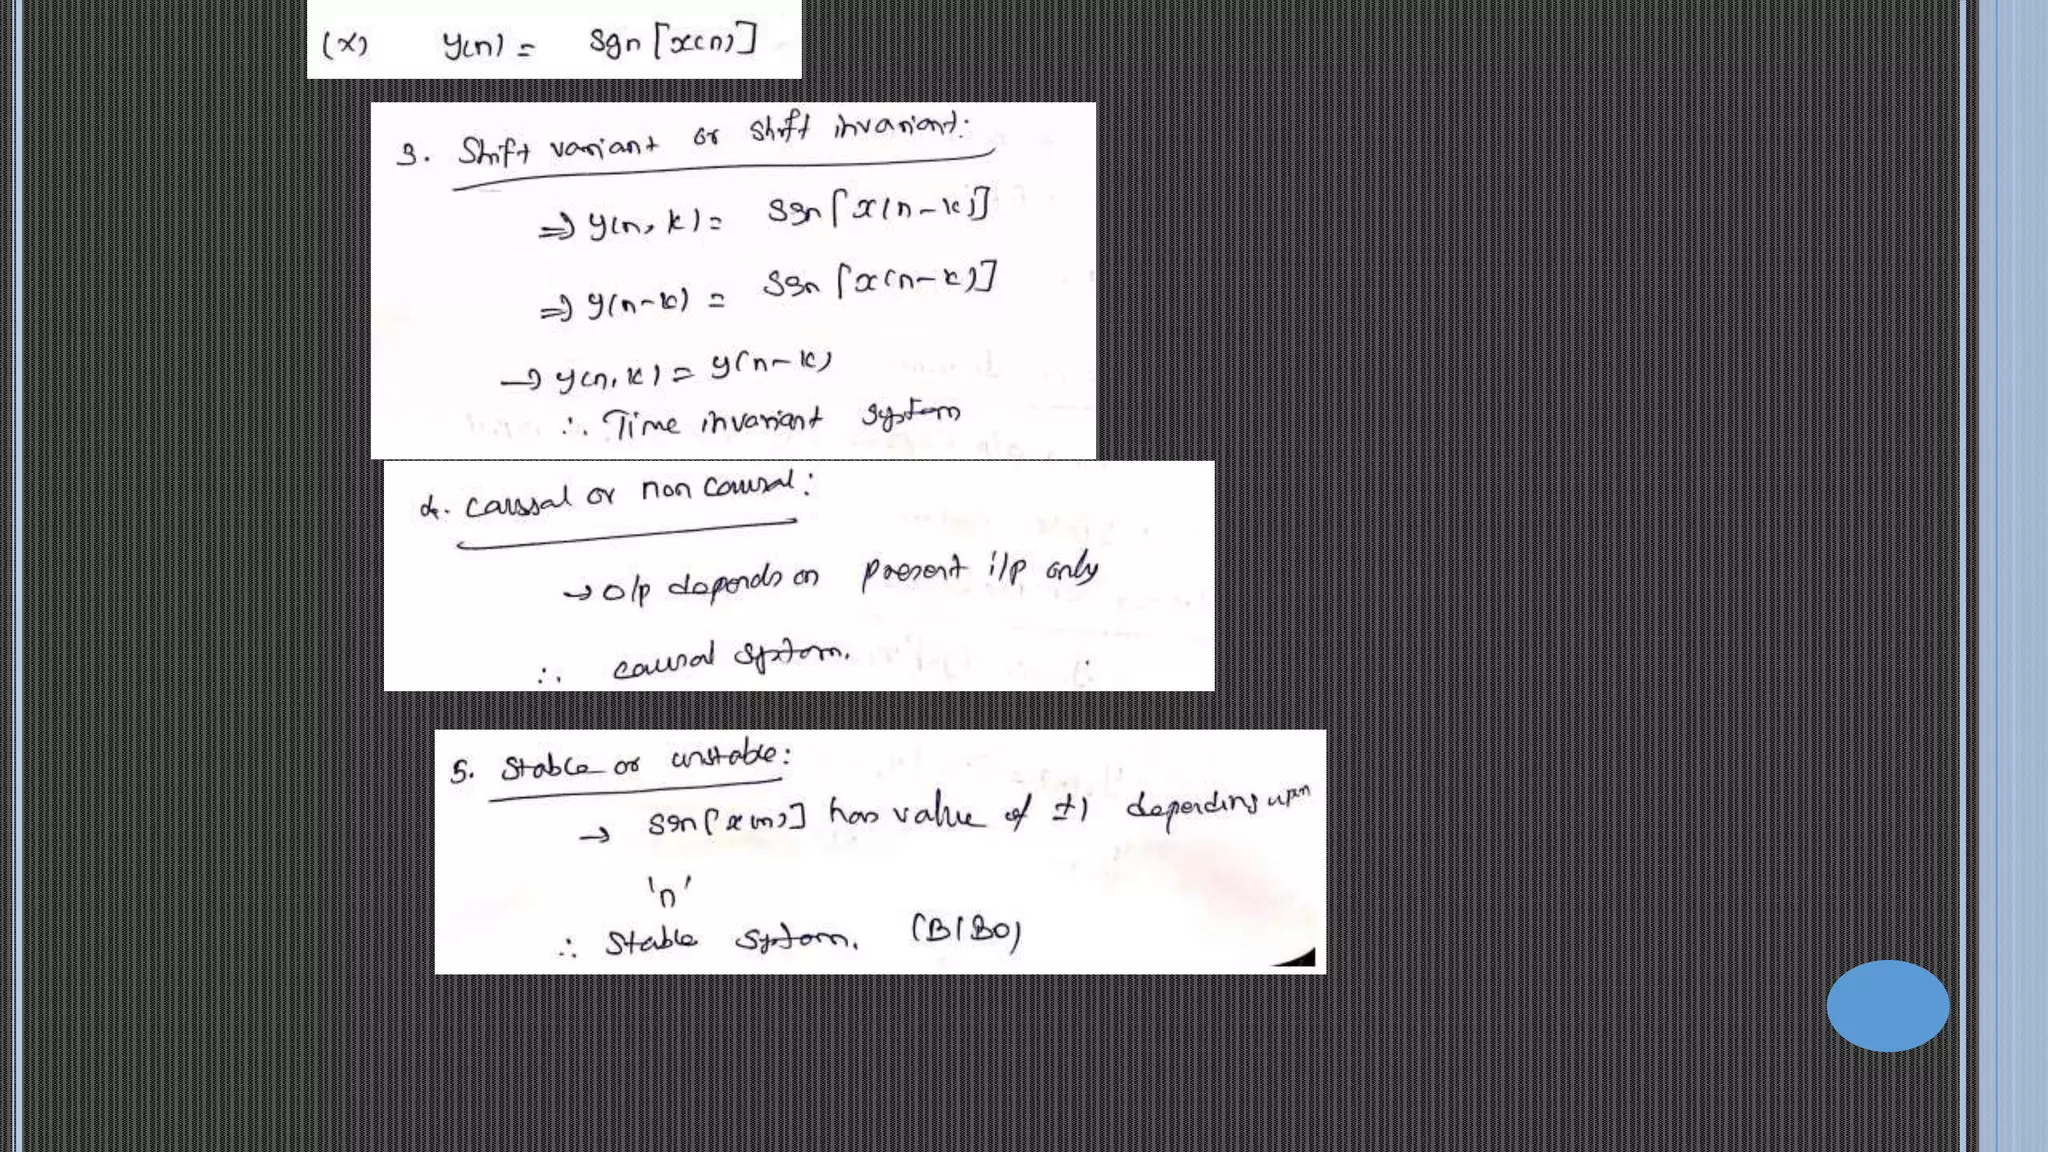 (x) y(n) = Sgn [x(n)]
3. Shift variant or Shift invariant:
⇒ y(n, k) = Sgn [x(n-k)]
⇒ y(n-k) = Sgn [x(n-k)]
→ y(n, k) = y(n-k)
∴ Time invariant system
4. Caussal or non causal:
→ o/p depends on present i/p only
∴ causal system.
5. Stable or unstable:
→ Sgn [x(n)] has value of ±1 depending upon
'n'
∴ Stable system. (BIBO)